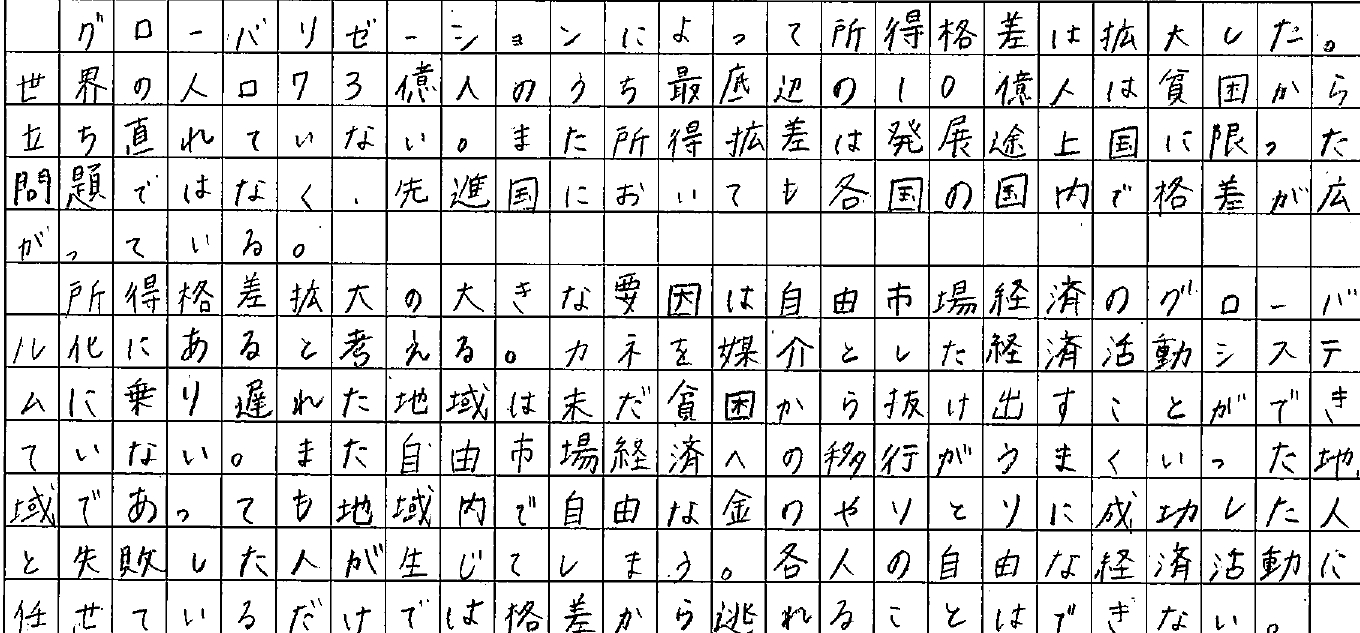 グローバリゼーションによって所得格差は拡大した。
世界の人口73億人のうち最底辺の10億人は貧国から
立ち直れていない。また所得拡差は発展途上国に限った
問題ではなく、先進国においても各国の国内で格差が広
がっている。
所得格差拡大の大きな要因は自由市場経済のグローバ
ル化にあると考える。カネを媒介とした経済活動システ
ムに乗り遅れた地域は未だ貧困から抜け出すことができ
ていない。また自由市場経済への移行がうまくいった地
域であっても地域内で自由な金のやりとりに成功した人
と失敗した人が生じてしまう。各人の自由な経済活動に
任せているだけでは格差から逃れることはできない。